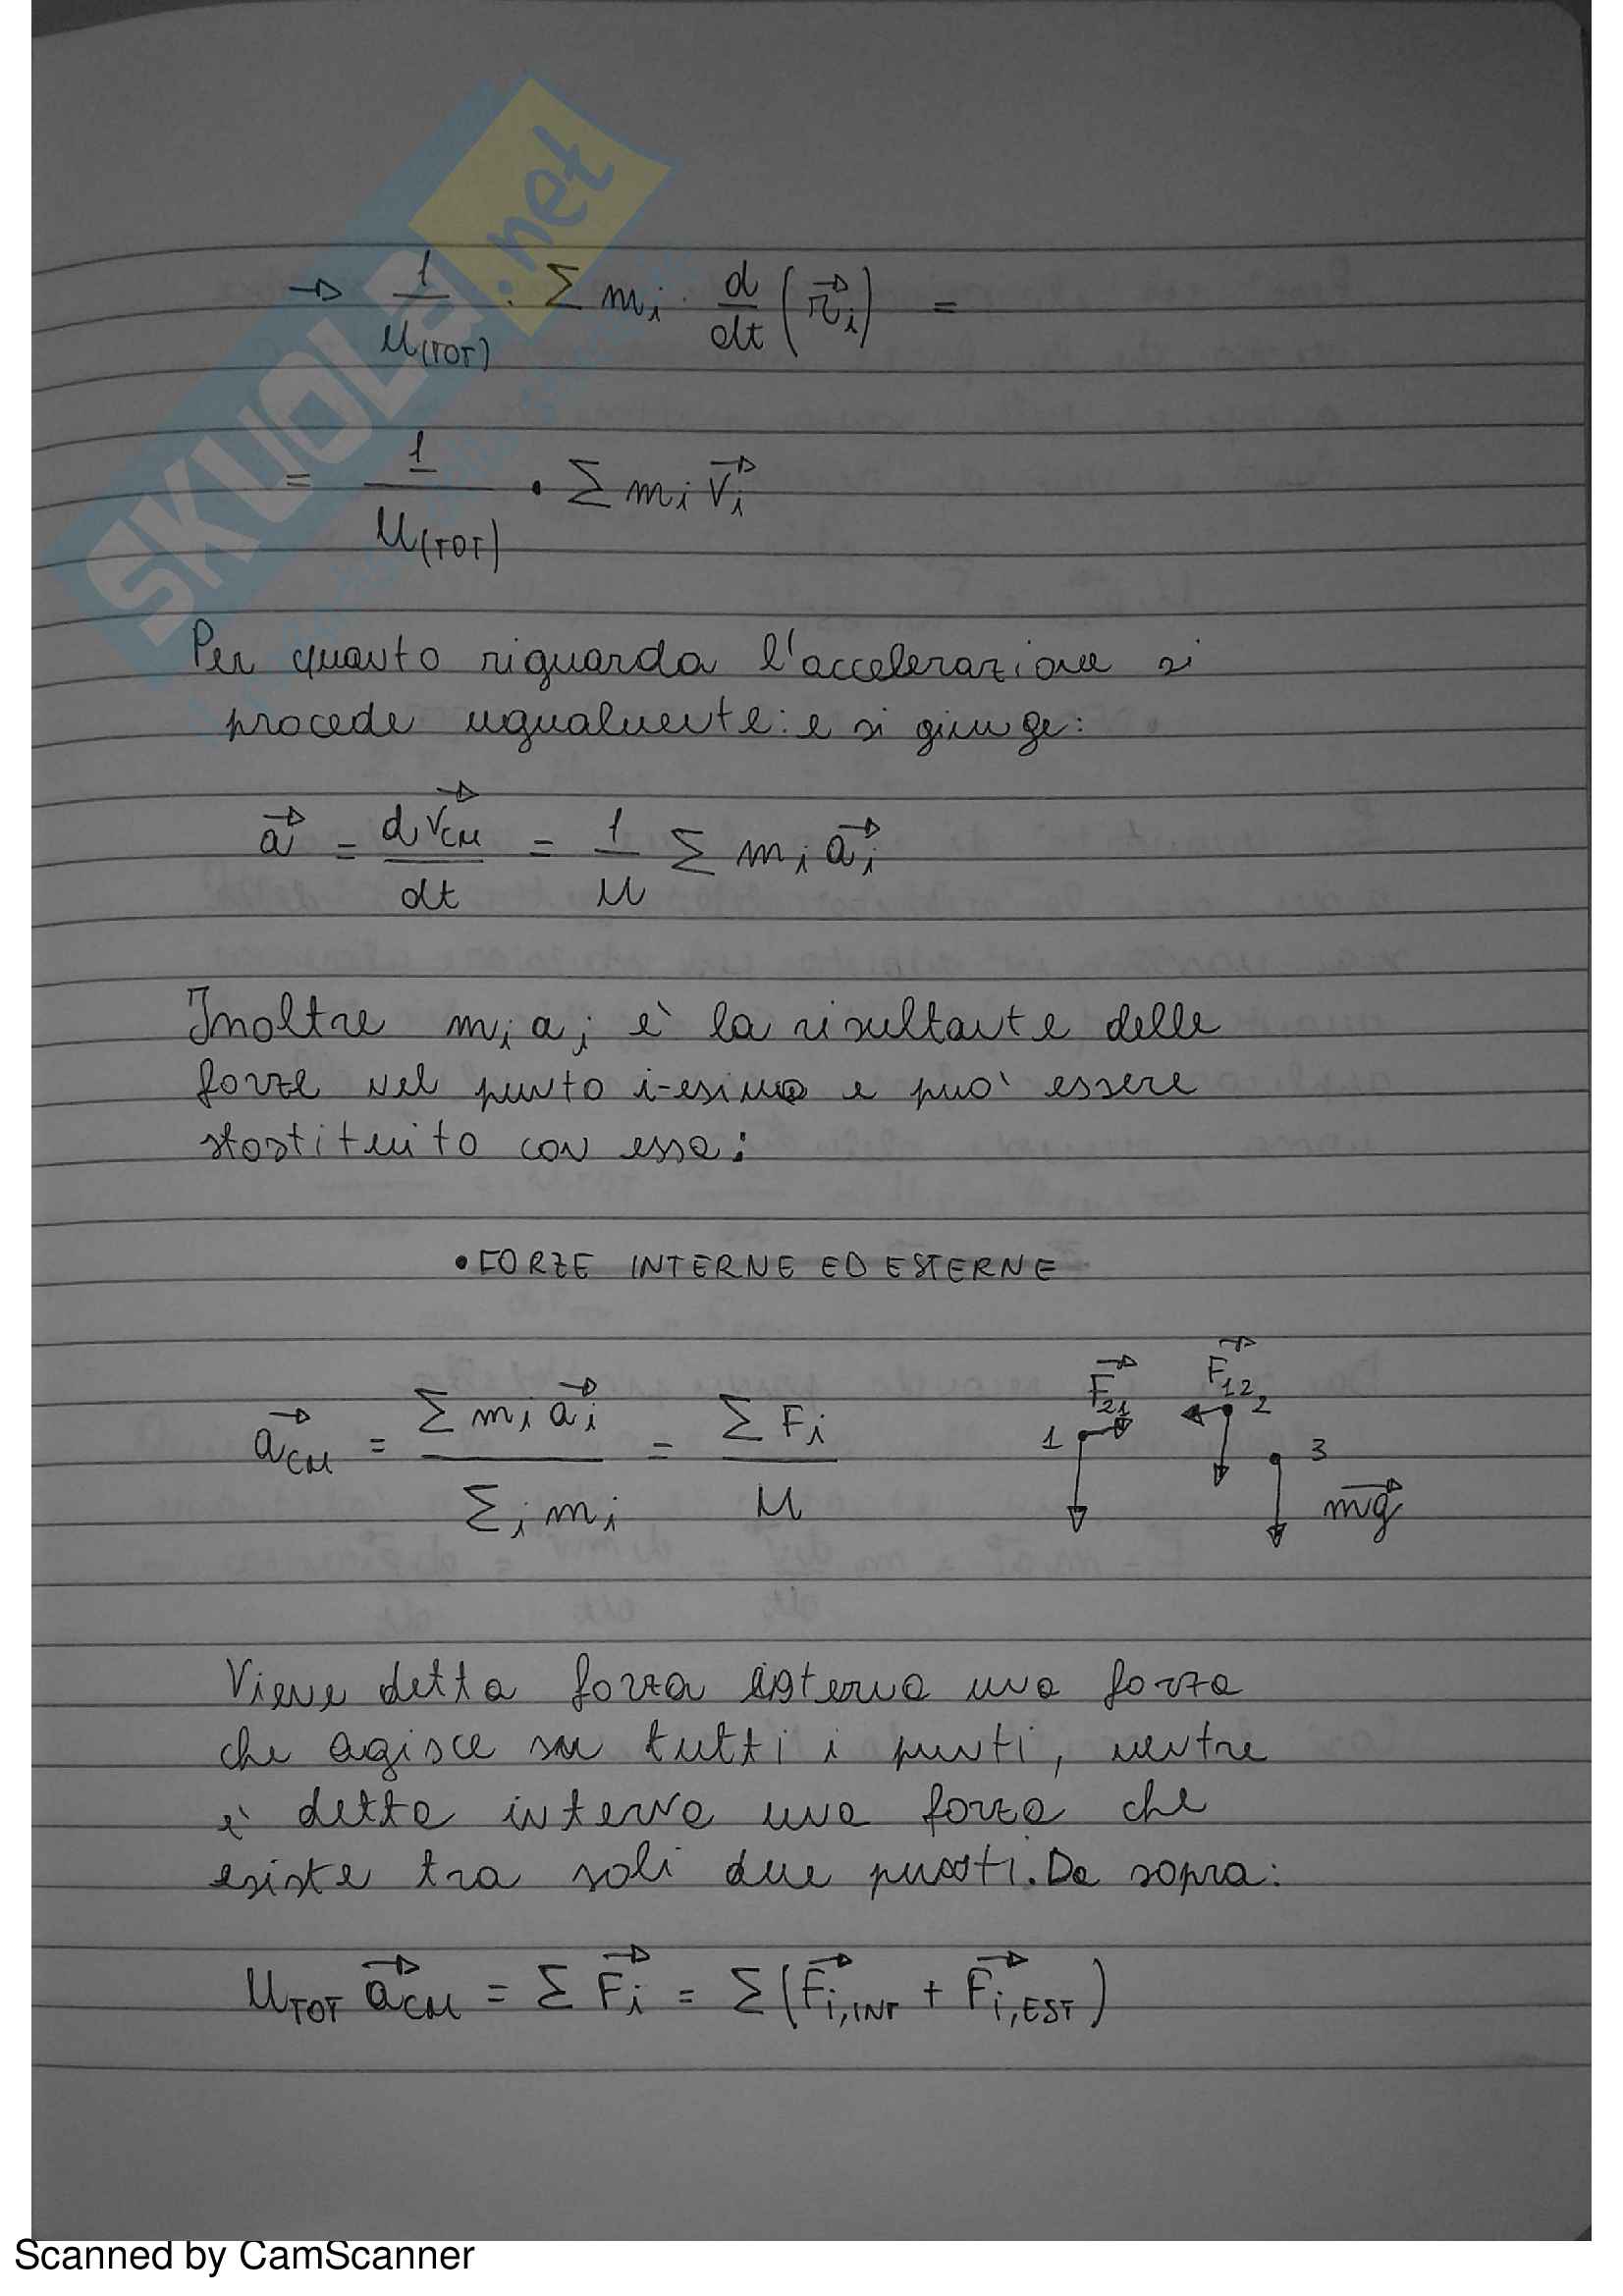 → 1/M(TOT) · Σ mᵢ · d/dt (r⃗ᵢ) =
= 1/M(TOT) • Σ mᵢ v⃗ᵢ
Per quanto riguarda l'accelerazione si
procede ugualmente: e si giunge:
a⃗ = dv⃗CM/dt = 1/M Σ mᵢ a⃗ᵢ
Inoltre mᵢaᵢ è la risultante delle
forze nel punto i-esimo e può essere
stostituito con essa:
• FORZE INTERNE ED ESTERNE
a⃗CM = Σ mᵢ a⃗ᵢ / Σᵢ mᵢ = Σ Fᵢ / M
F⃗₂₁ F⃗₁₂
1 2 3
mg⃗
Viene detta forza esterna una forza
che agisce su tutti i punti, mentre
è detta interna una forza che
esiste tra soli due punti. Da sopra:
MTOT a⃗CM = Σ F⃗ᵢ = Σ (F⃗ᵢ,INT + F⃗ᵢ,EST)
SKUOLa.net
Scanned by CamScanner